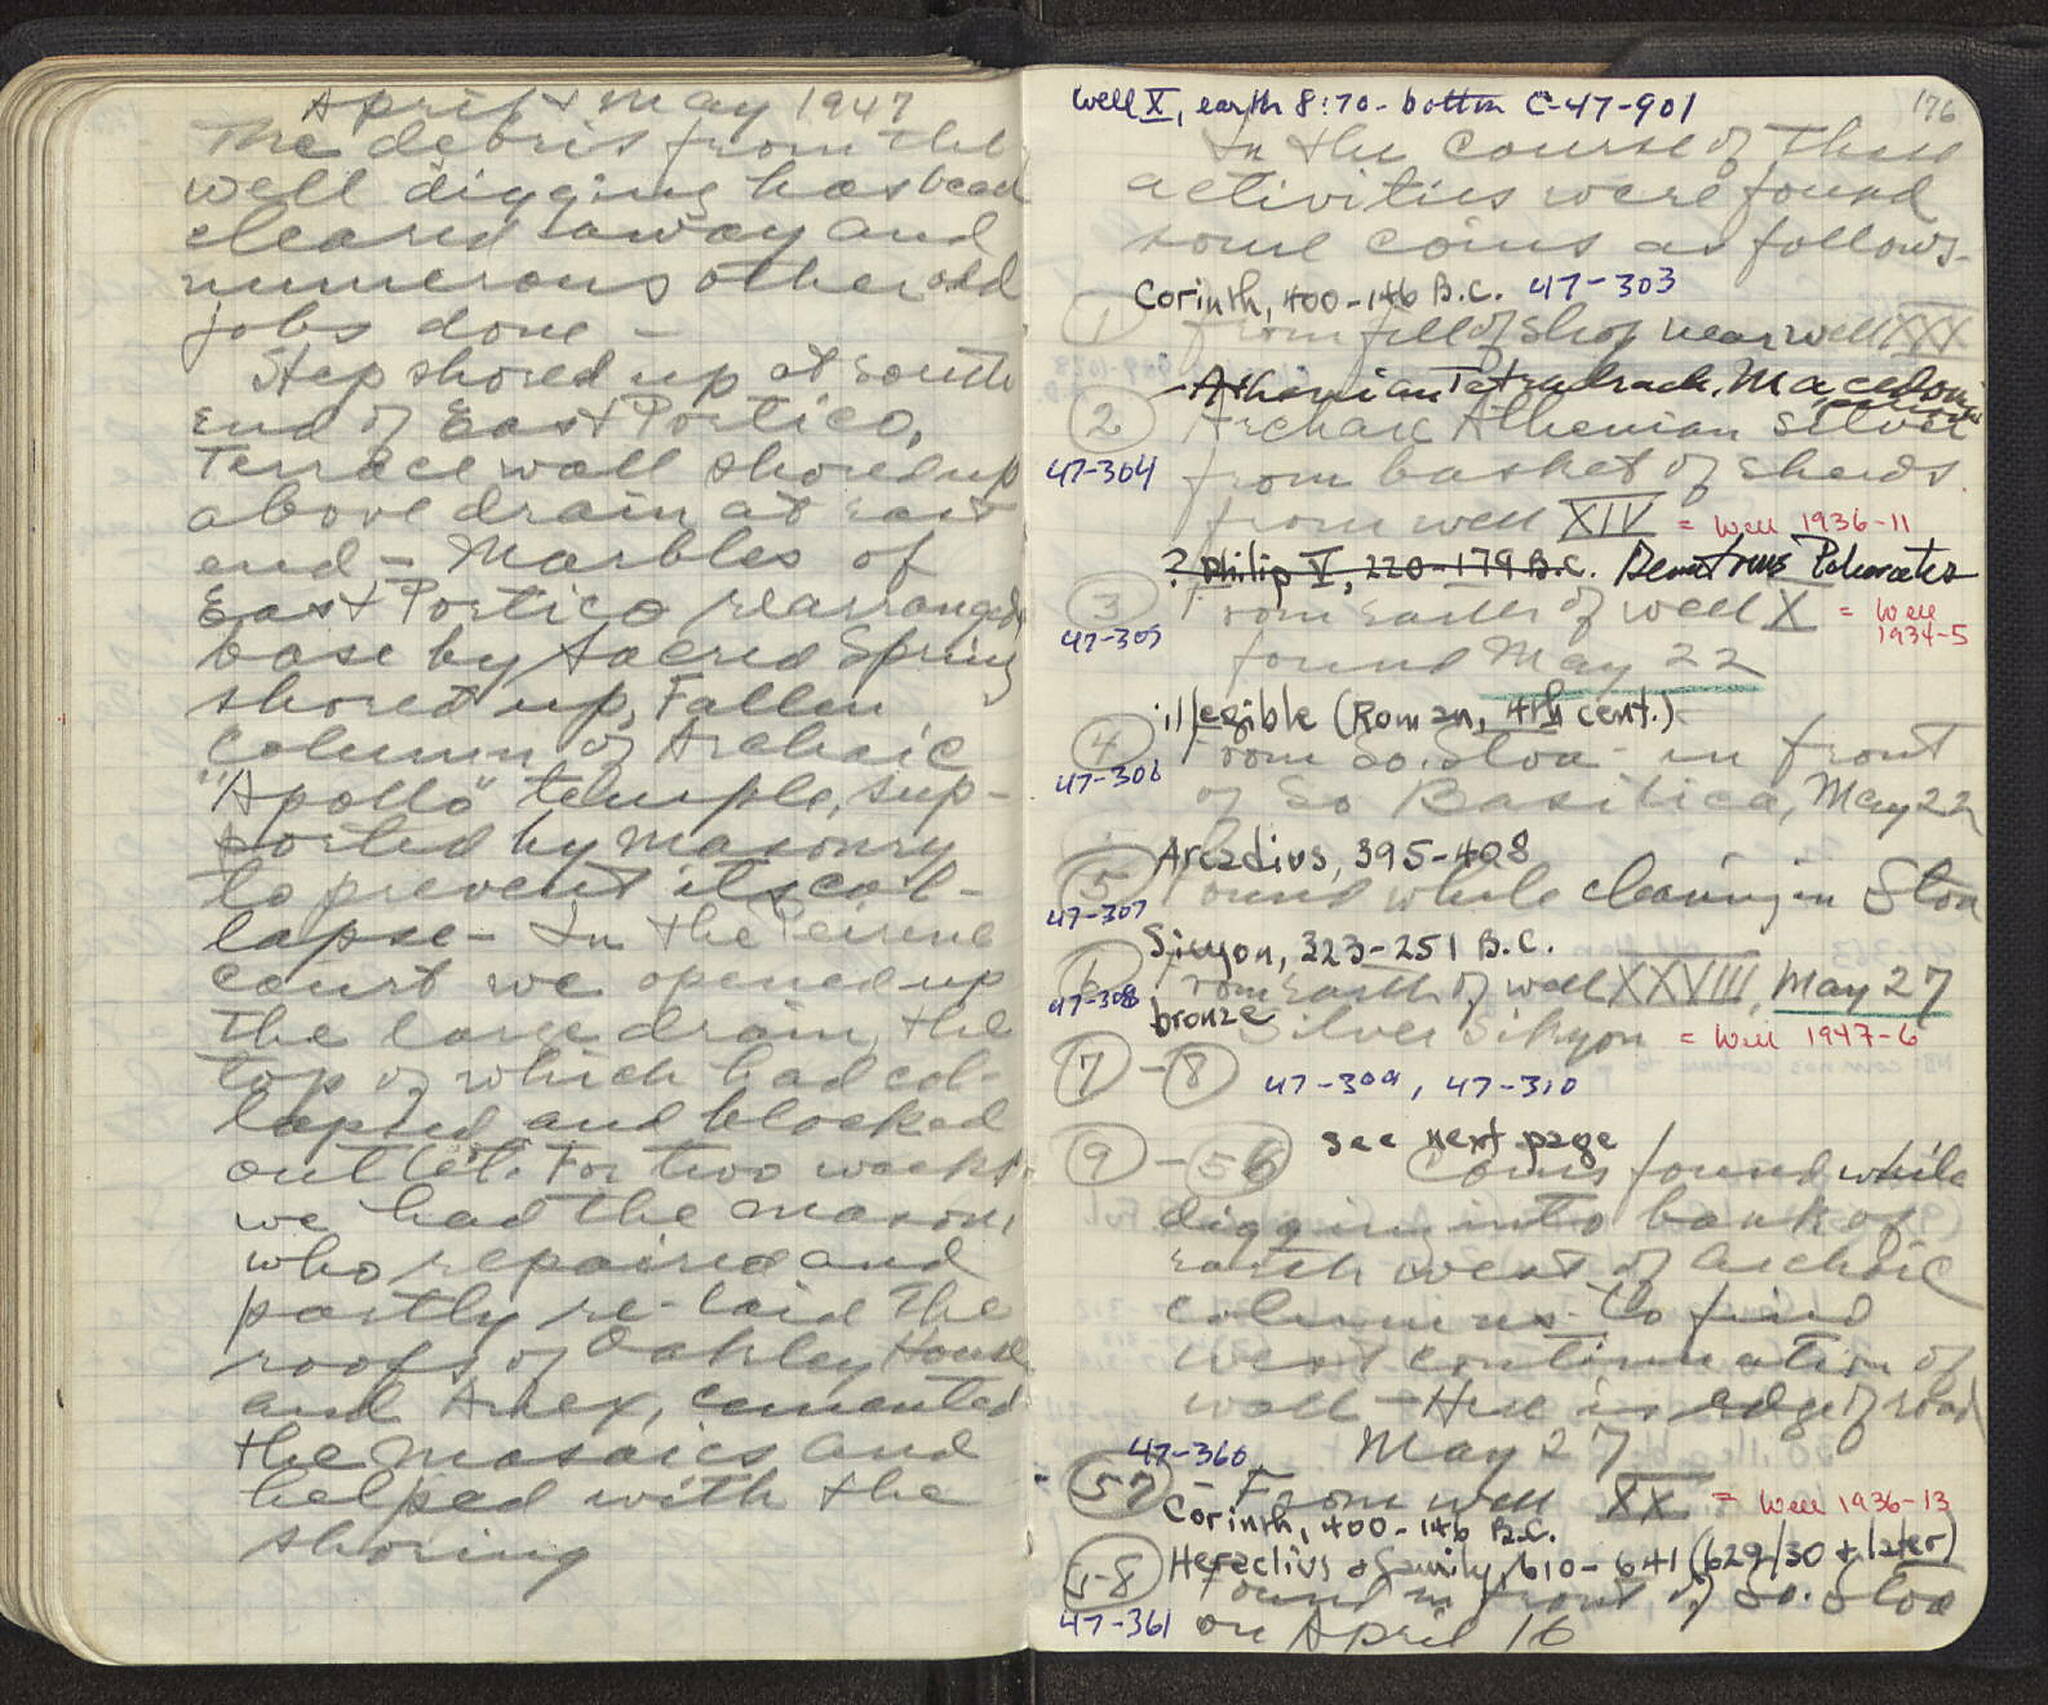 April & May 1947
The debris from the
well digging has been
cleared away and
numerous other odd
jobs done -
Step shored up at south
end of East Portico,
Terrace wall shored up
above drain at east
end - Marbles of
East Portico rearranged
base by Sacred Spring
shored up, Fallen
column of Archaic
"Apollo" temple, sup-
ported by masonry
to prevent its col-
lapse - In the Peirene
court we opened up
the large drain, the
top of which had col-
lapsed and blocked
outlet. For two weeks
we had the masons,
who repaired and
partly re-laid the
roofs of Oakley House
and Anex, cemented
the mosaics and
helped with the
shoring
Well X, earth 8:70 - bottom C-47-901
176
In the course of these
activities were found
some coins as follows -
Corinth, 400-146 B.C. 47-303
1 from fill of shop near well XX
Athenian Tetradrach. Macedonian
2 Archaic Athenian silver
47-304 from basket of sherds
from well XIV = Well 1936-11
? Philip V, 220-179 B.C. Demetrius Poliorcetes
3 From earth of well X = Well 1934-5
47-305 found May 22
illegible (Roman, 4th cent.)
4 From So. Stoa - in front
47-306 of So Basilica, May 22
Arcadius, 395-408
5 Found while cleaning in Stoa
47-307
Sicyon, 323-251 B.C.
6 From earth of well XXVIII, May 27
47-308
bronze Silver Sikyon = Well 1947-6
7 - 8 47-309, 47-310
9 - 56 see next page
Coins found while
digging into bank of
earth west of archaic
columns to find
west continuation of
wall - Here is edge of road
47-360 May 27
57 - From well XX = Well 1936-13
Corinth, 400-146 B.C.
58 Heraclius & family, 610-641 (629/30 & later)
Found in front of So. Stoa
47-361 on April 16